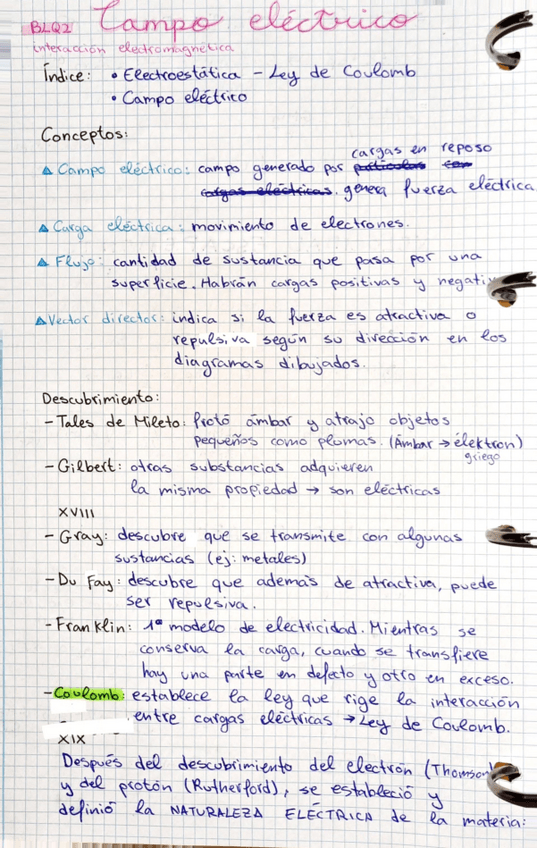 BLQ2 Campo eléctrico
interacción electromagnética
Índice: • Electroestática - Ley de Coulomb
• Campo eléctrico
Conceptos:
cargas en reposo
Campo eléctrico: campo generado por partículas con
cargas eléctricas. genera fuerza eléctrica
Carga eléctrica: movimiento de electrones.
Flujo: cantidad de sustancia que pasa por una
superficie. Habrán cargas positivas y
Vector director: indica si la fuerza es atractiva o
repulsiva según su dirección en los
diagramas dibujados.
Descubrimiento:
- Tales de Mileto: frotó ámbar y atrajo objetos
pequeños como plumas. (Ámbar → élektron)
griego
- Gilbert: otras substancias adquieren
la misma propiedad → son eléctricas
XVIII
- Gray: descubre que se transmite con algunas
sustancias (ej: metales)
- Du Fay: descubre que además de atractiva, puede
ser repulsiva.
- Franklin: 1º modelo de electricidad. Mientras se
conserva la carga, cuando se transfiere
hay una parte en defecto y otro en exceso.
- Coulomb: establece la ley que rige la interacción
entre cargas eléctricas → Ley de Coulomb.
XIX
Después del descubrimiento del electrón (Thomson)
y del protón (Rutherford), se estableció y
definió la NATURALEZA ELÉCTRICA de la materia: